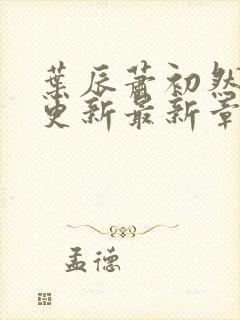 葉辰蕭初然
更新最新章
孟德